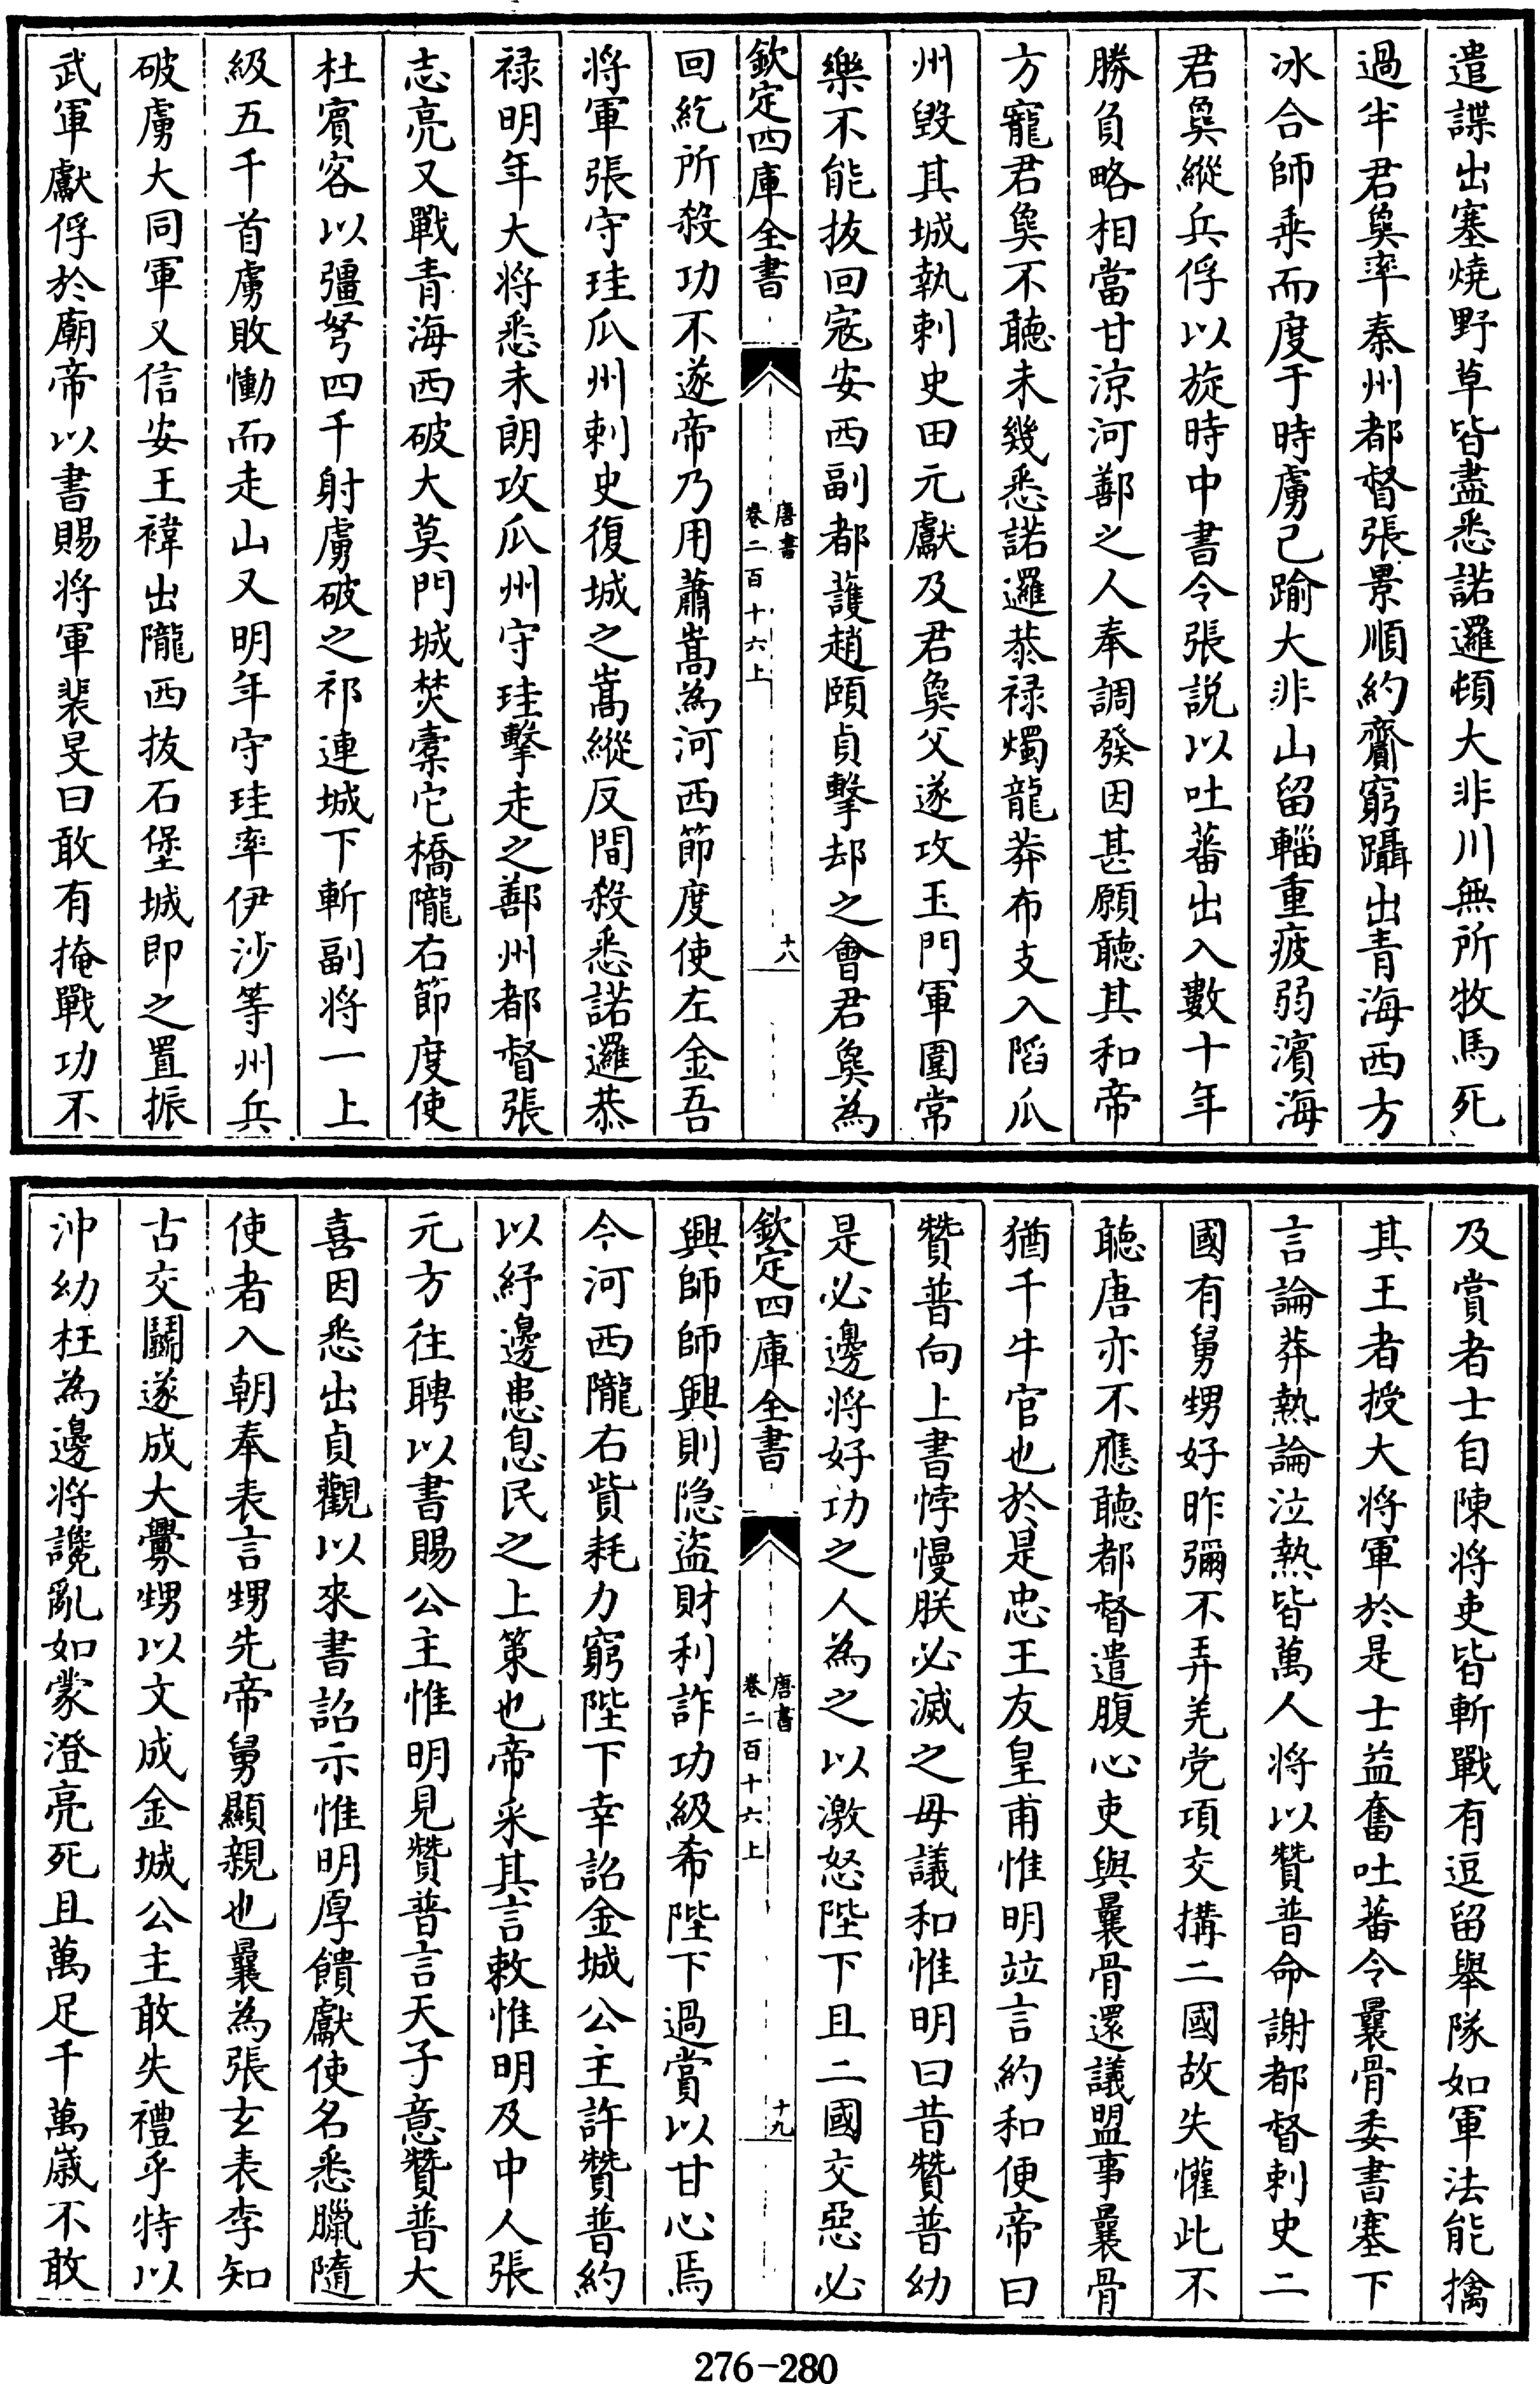 遣諜出塞燒野草皆盡悉諾邏頓大非川無所牧馬死
過半君㚟率秦州都督張景順約齎窮躡出青海西方
冰合師乘而度于時虜已踰大非山留輜重疲弱濱海
君㚟縱兵俘以旋時中書令張説以吐蕃出入數十年
勝負略相當甘涼河鄯之人奉調發因甚願聽其和帝
方寵君㚟不聽未幾悉諾邏恭禄燭龍莽布支入䧟瓜
州毁其城執刺史田元獻及君㚟父遂攻玉門軍圍常
樂不能抜回寇安西副都護趙頤貞擊却之會君㚟為
欽定四庫全書
唐書
卷二百十六上
十八
回紇所殺功不遂帝乃用蕭嵩為河西節度使左金吾
将軍張守珪瓜州刺史復城之嵩縱反間殺悉諾邏恭
禄明年大将悉末朗攻瓜州守珪擊走之鄯州都督張
志亮又戰青海西破大莫門城焚槖它橋隴右節度使
杜賓客以彊弩四千射虜破之祁連城下斬副将一上
級五千首虜敗慟而走山又明年守珪率伊沙等州兵
破虜大同軍又信安王禕出隴西抜石堡城即之置振
武軍獻俘於廟帝以書賜将軍裴旻曰敢有掩戰功不
及賞者士自陳将吏皆斬戰有逗留舉隊如軍法能擒
其王者授大将軍於是士益奮吐蕃令曩骨委書塞下
言論莽熱論泣熱皆萬人将以贊普命謝都督刺史二
國有舅甥好昨彌不弄羌党項交搆二國故失懽此不
聽唐亦不應聽都督遣腹心吏與曩骨還議盟事曩骨
猶千牛官也於是忠王友皇甫惟明竝言約和便帝曰
贊普向上書悖慢朕必滅之毋議和惟明曰昔贊普幼
是必邊将好功之人為之以激怒陛下且二國交惡必
欽定四庫全書
唐書
卷二百十六上
十九
興師師興則隐盜財利詐功級希陛下過賞以甘心焉
今河西隴右貲耗力窮陛下幸詔金城公主許贊普約
以紓邊患息民之上策也帝采其言敕惟明及中人張
元方往聘以書賜公主惟明見贊普言天子意贊普大
喜因悉出貞觀以來書詔示惟明厚饋獻使名悉臘隨
使者入朝奉表言甥先帝舅顯親也曩為張玄表李知
古交鬭遂成大釁甥以文成金城公主敢失禮乎特以
沖幼枉為邊将讒亂如蒙澄亮死且萬足千萬歲不敢
276-280